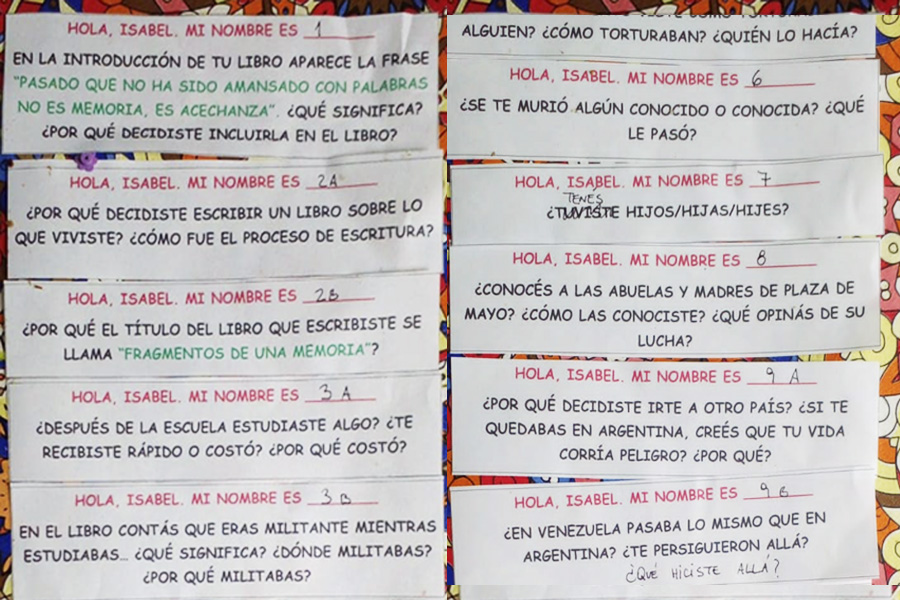 HOLA, ISABEL. MI NOMBRE ES 1
EN LA INTRODUCCIÓN DE TU LIBRO APARECE LA FRASE
"PASADO QUE NO HA SIDO AMANSADO CON PALABRAS
NO ES MEMORIA, ES ACECHANZA". ¿QUÉ SIGNIFICA?
¿POR QUÉ DECIDISTE INCLUIRLA EN EL LIBRO?
HOLA, ISABEL. MI NOMBRE ES 2A
¿POR QUÉ DECIDISTE ESCRIBIR UN LIBRO SOBRE LO
QUE VIVISTE? ¿CÓMO FUE EL PROCESO DE ESCRITURA?
HOLA, ISABEL. MI NOMBRE ES 2B
¿POR QUÉ EL TÍTULO DEL LIBRO QUE ESCRIBISTE SE
LLAMA "FRAGMENTOS DE UNA MEMORIA"?
HOLA, ISABEL. MI NOMBRE ES 3A
¿DESPUÉS DE LA ESCUELA ESTUDIASTE ALGO? ¿TE
RECIBISTE RÁPIDO O COSTÓ? ¿POR QUÉ COSTÓ?
HOLA, ISABEL. MI NOMBRE ES 3B
EN EL LIBRO CONTÁS QUE ERAS MILITANTE MIENTRAS
ESTUDIABAS... ¿QUÉ SIGNIFICA? ¿DÓNDE MILITABAS?
¿POR QUÉ MILITABAS?
ALGUIEN? ¿CÓMO TORTURABAN? ¿QUIÉN LO HACÍA?
HOLA, ISABEL. MI NOMBRE ES 6
¿SE TE MURIÓ ALGÚN CONOCIDO O CONOCIDA? ¿QUÉ
LE PASÓ?
HOLA, ISABEL. MI NOMBRE ES 7
TENES
¿TUVISTE HIJOS/HIJAS/HIJES?
HOLA, ISABEL. MI NOMBRE ES 8
¿CONOCÉS A LAS ABUELAS Y MADRES DE PLAZA DE
MAYO? ¿CÓMO LAS CONOCISTE? ¿QUÉ OPINÁS DE SU
LUCHA?
HOLA, ISABEL. MI NOMBRE ES 9 A
¿POR QUÉ DECIDISTE IRTE A OTRO PAÍS? ¿SI TE
QUEDABAS EN ARGENTINA, CREÉS QUE TU VIDA
CORRÍA PELIGRO? ¿POR QUÉ?
HOLA, ISABEL. MI NOMBRE ES 9 B
¿EN VENEZUELA PASABA LO MISMO QUE EN
ARGENTINA? ¿TE PERSIGUIERON ALLÁ?
¿QUÉ HICISTE ALLÁ?